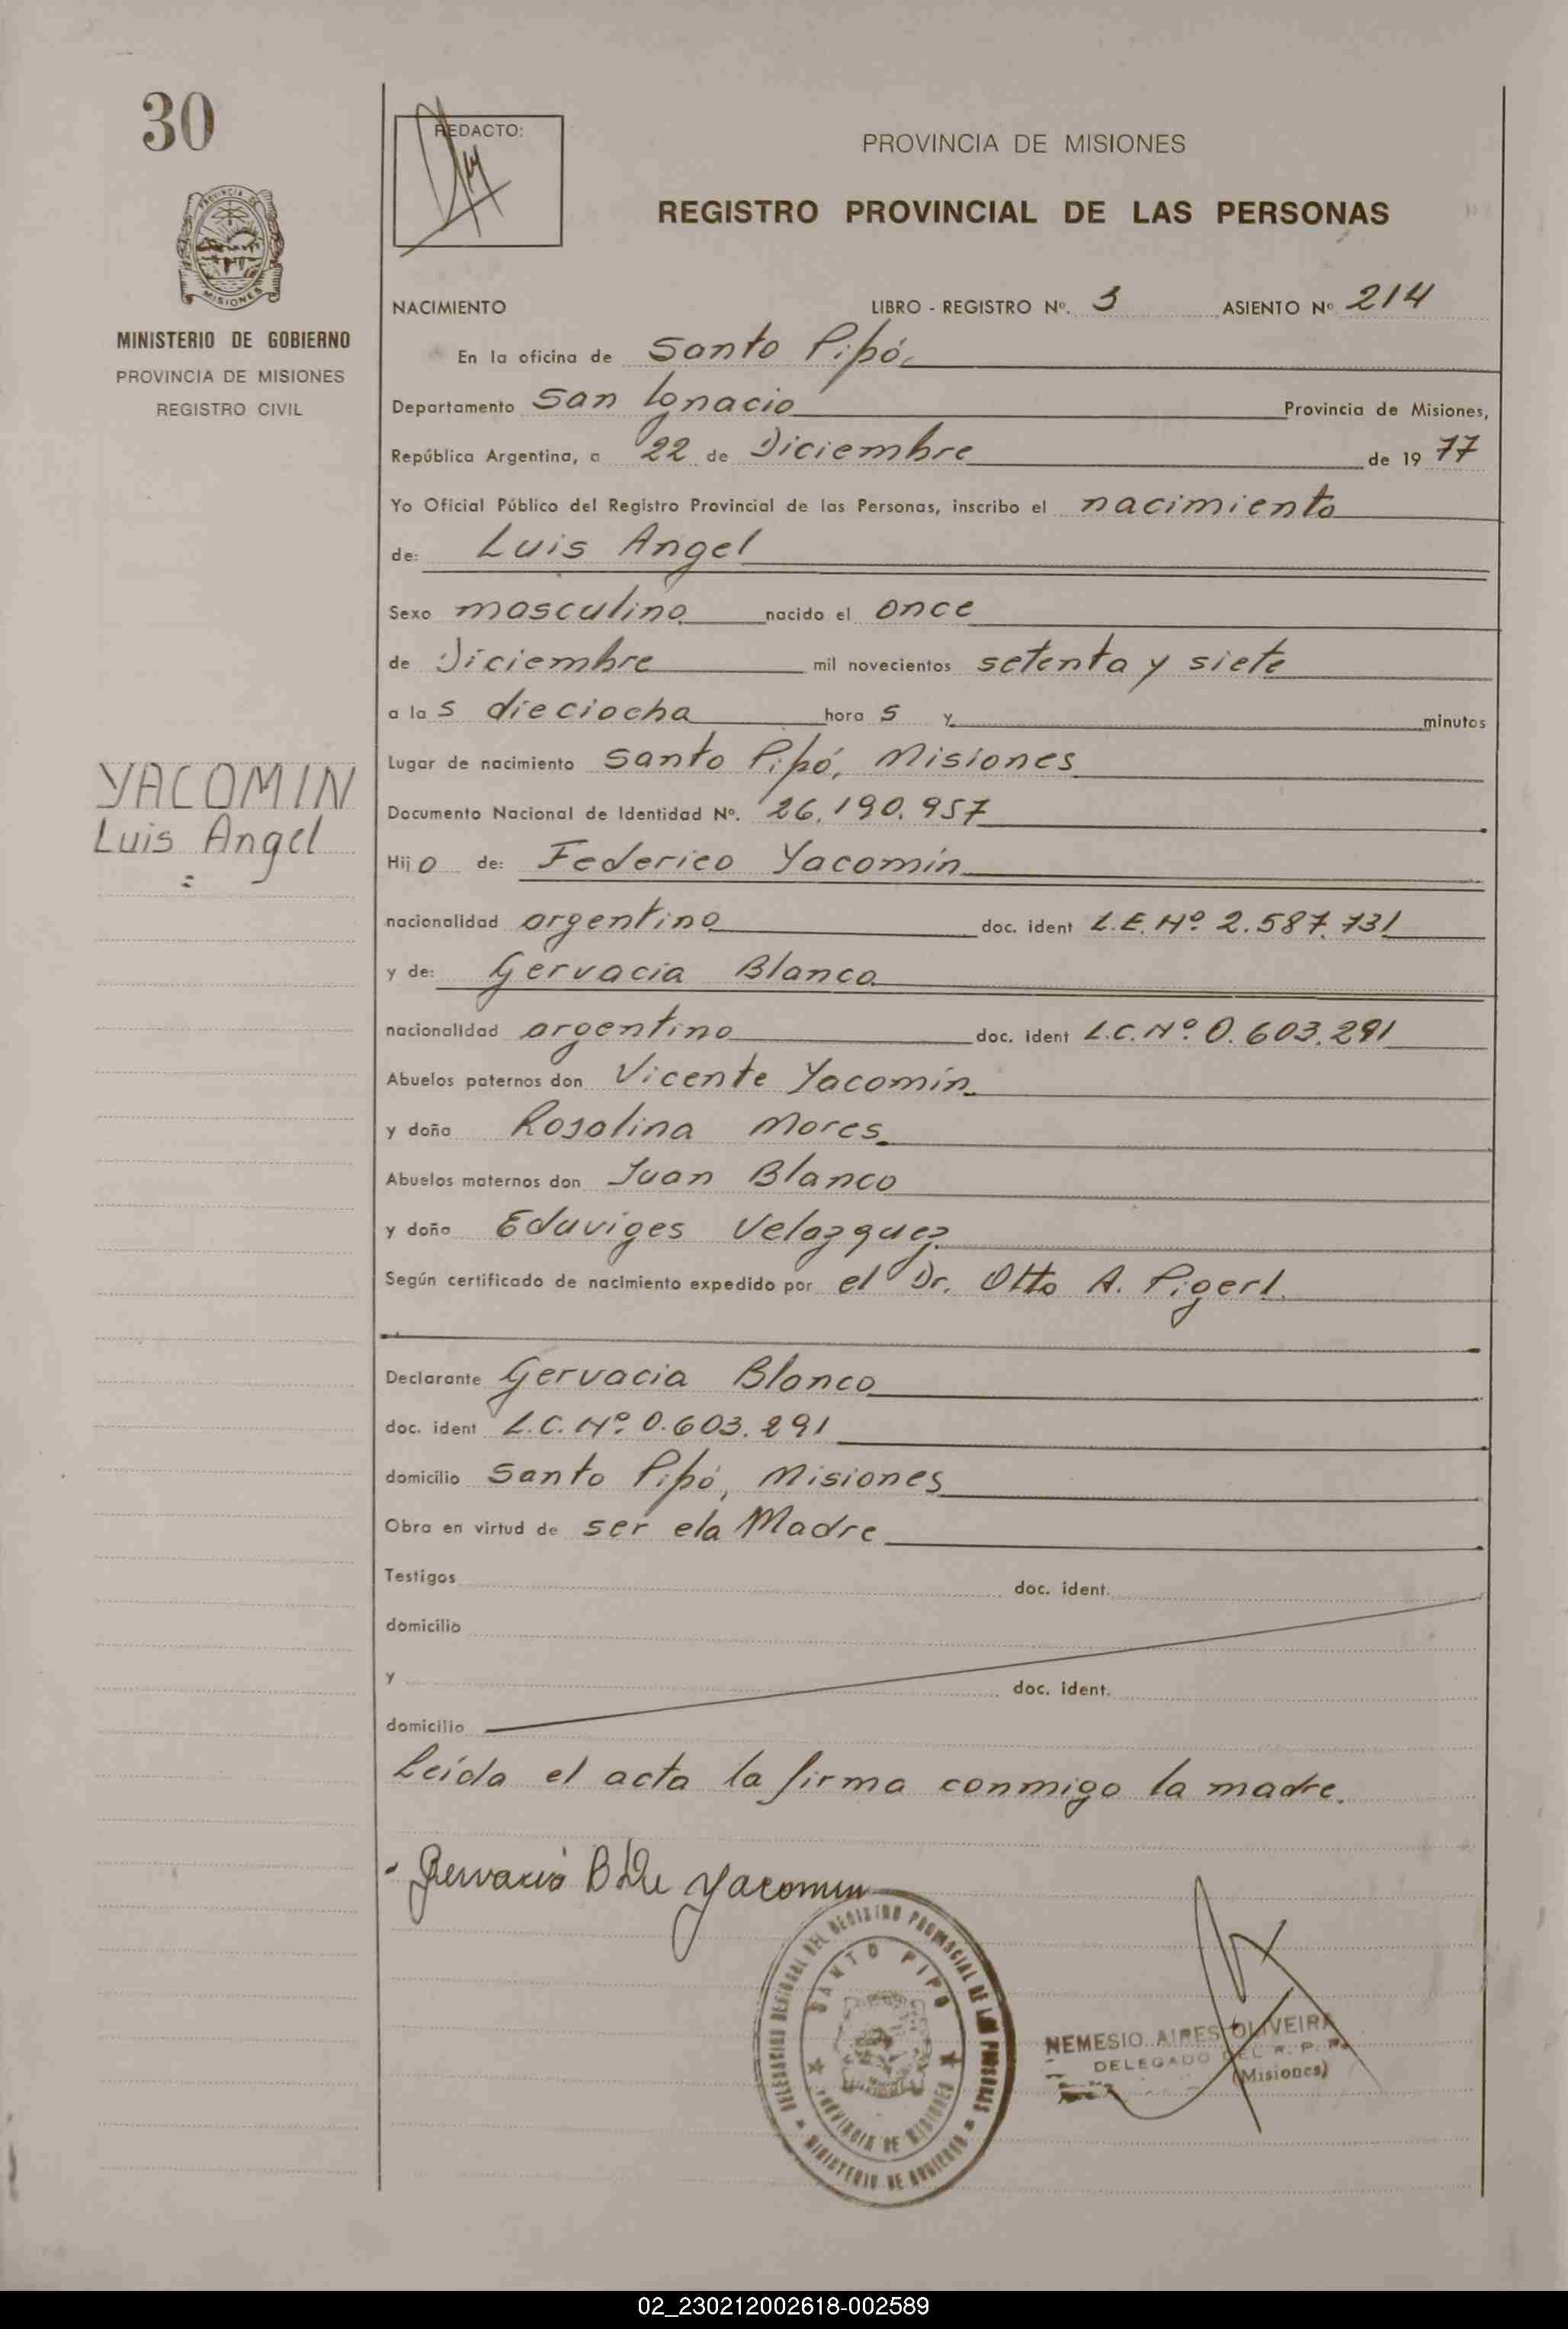 30
REDACTO:
PROVINCIA DE MISIONES
REGISTRO PROVINCIAL DE LAS PERSONAS
PROVINCIA DE
MISIONES
MINISTERIO DE GOBIERNO
PROVINCIA DE MISIONES
REGISTRO CIVIL
NACIMIENTO LIBRO - REGISTRO Nº. 3 ASIENTO Nº 214
En la oficina de Santo Pipó,
Departamento San Ignacio Provincia de Misiones,
República Argentina, a 22 de Diciembre de 1977
Yo Oficial Público del Registro Provincial de las Personas, inscribo el nacimiento
de: Luis Angel
Sexo masculino nacido el once
de Diciembre mil novecientos setenta y siete
a las dieciocho horas y minutos
Lugar de nacimiento Santo Pipó, Misiones
YACOMIN
Luis Angel
Documento Nacional de Identidad Nº. 26.190.957
Hijo de: Federico Yacomin
nacionalidad argentino doc. ident L.E. Nº 2.587.731
y de: Gervacia Blanco
nacionalidad argentino doc. ident L.C. Nº 0.603.291
Abuelos paternos don Vicente Yacomin
y doña Rosalina Mores
Abuelos maternos don Juan Blanco
y doña Eduviges Velazquez
Según certificado de nacimiento expedido por el Dr. Otto A. Pigerl.
Declarante Gervacia Blanco
doc. ident L.C. Nº 0.603.291
domicilio Santo Pipó, Misiones
Obra en virtud de ser ela Madre
Testigos doc. ident.
domicilio
y doc. ident.
domicilio
Leída el acta la firma conmigo la madre.
Gervacia B de Yacomin
DELEGACION REGIONAL DEL REGISTRO PROVINCIAL DE LAS PERSONAS
SANTO PIPO
PROVINCIA DE MISIONES
MINISTERIO DE GOBIERNO
NEMESIO AIRES OLIVEIRA
DELEGADO DEL R. P. P.
(Misiones)
02_230212002618-002589